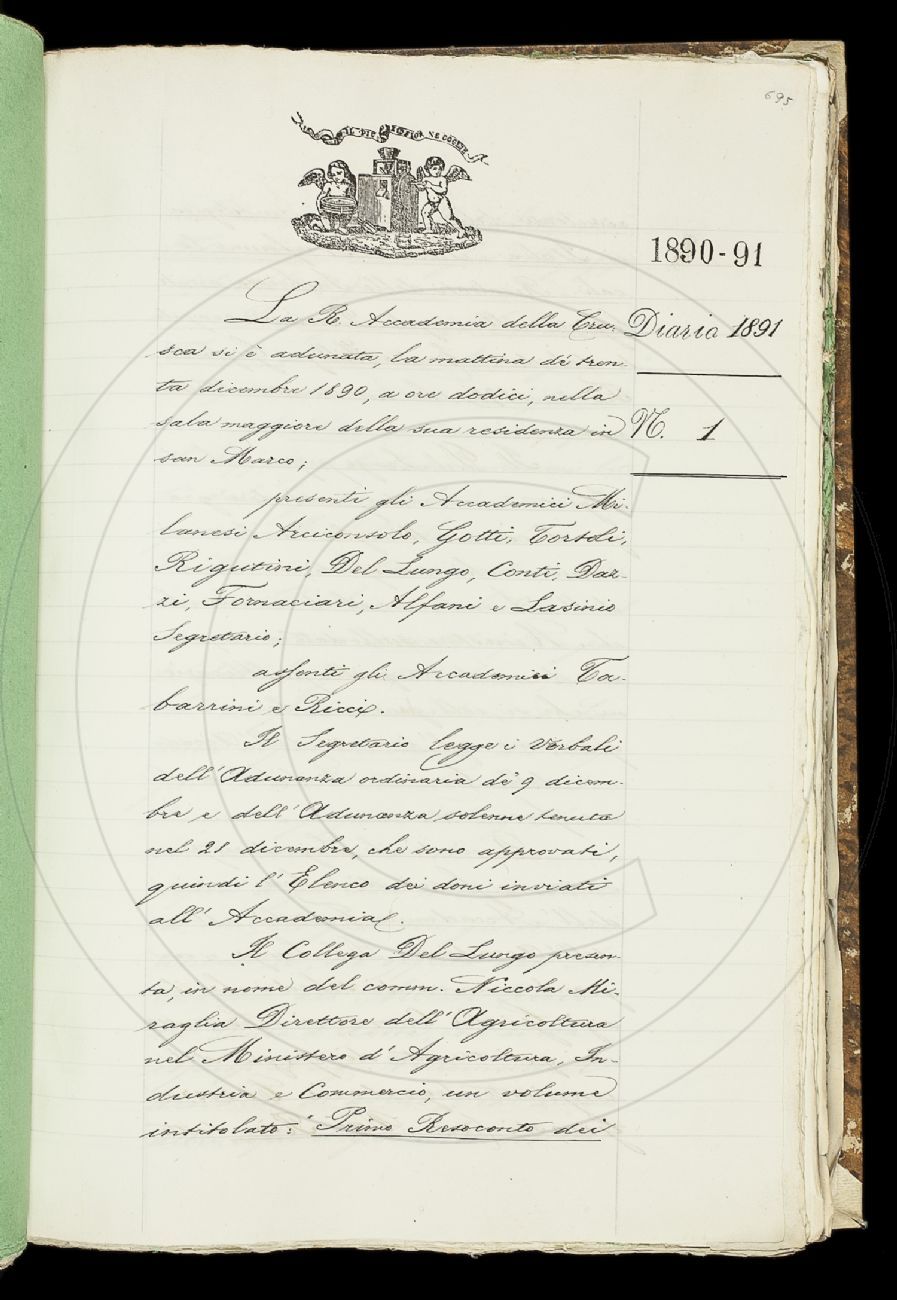 695
IL PIÙ BEL FIOR NE COGLIE
1890-91
Diario 1891
N. 1
La R. Accademia della Cru-
sca si è adunata, la mattina de' tren-
ta dicembre 1890, a ore dodici, nella
sala maggiore della sua residenza in
san Marco;
presenti gli Accademici Mi-
lanesi Arciconsolo, Gotti, Tortoli,
Rigutini, Del Lungo, Conti, Daz-
zi, Fornaciari, Alfani e Lasinio
Segretario;
assenti gli Accademici Ta-
barrini e Ricci.
Il Segretario legge i Verbali
dell'Adunanza ordinaria de' 9 dicem-
bre e dell'Adunanza solenne tenuta
nel 21 dicembre, che sono approvati,
quindi l'Elenco dei doni inviati
all'Accademia.
Il Collega Del Lungo presen-
ta, in nome del comm. Niccola Mi-
raglia Direttore dell'Agricoltura
nel Ministero d'Agricoltura, In-
dustria e Commercio, un volume
intitolato: "Primo Resoconto dei